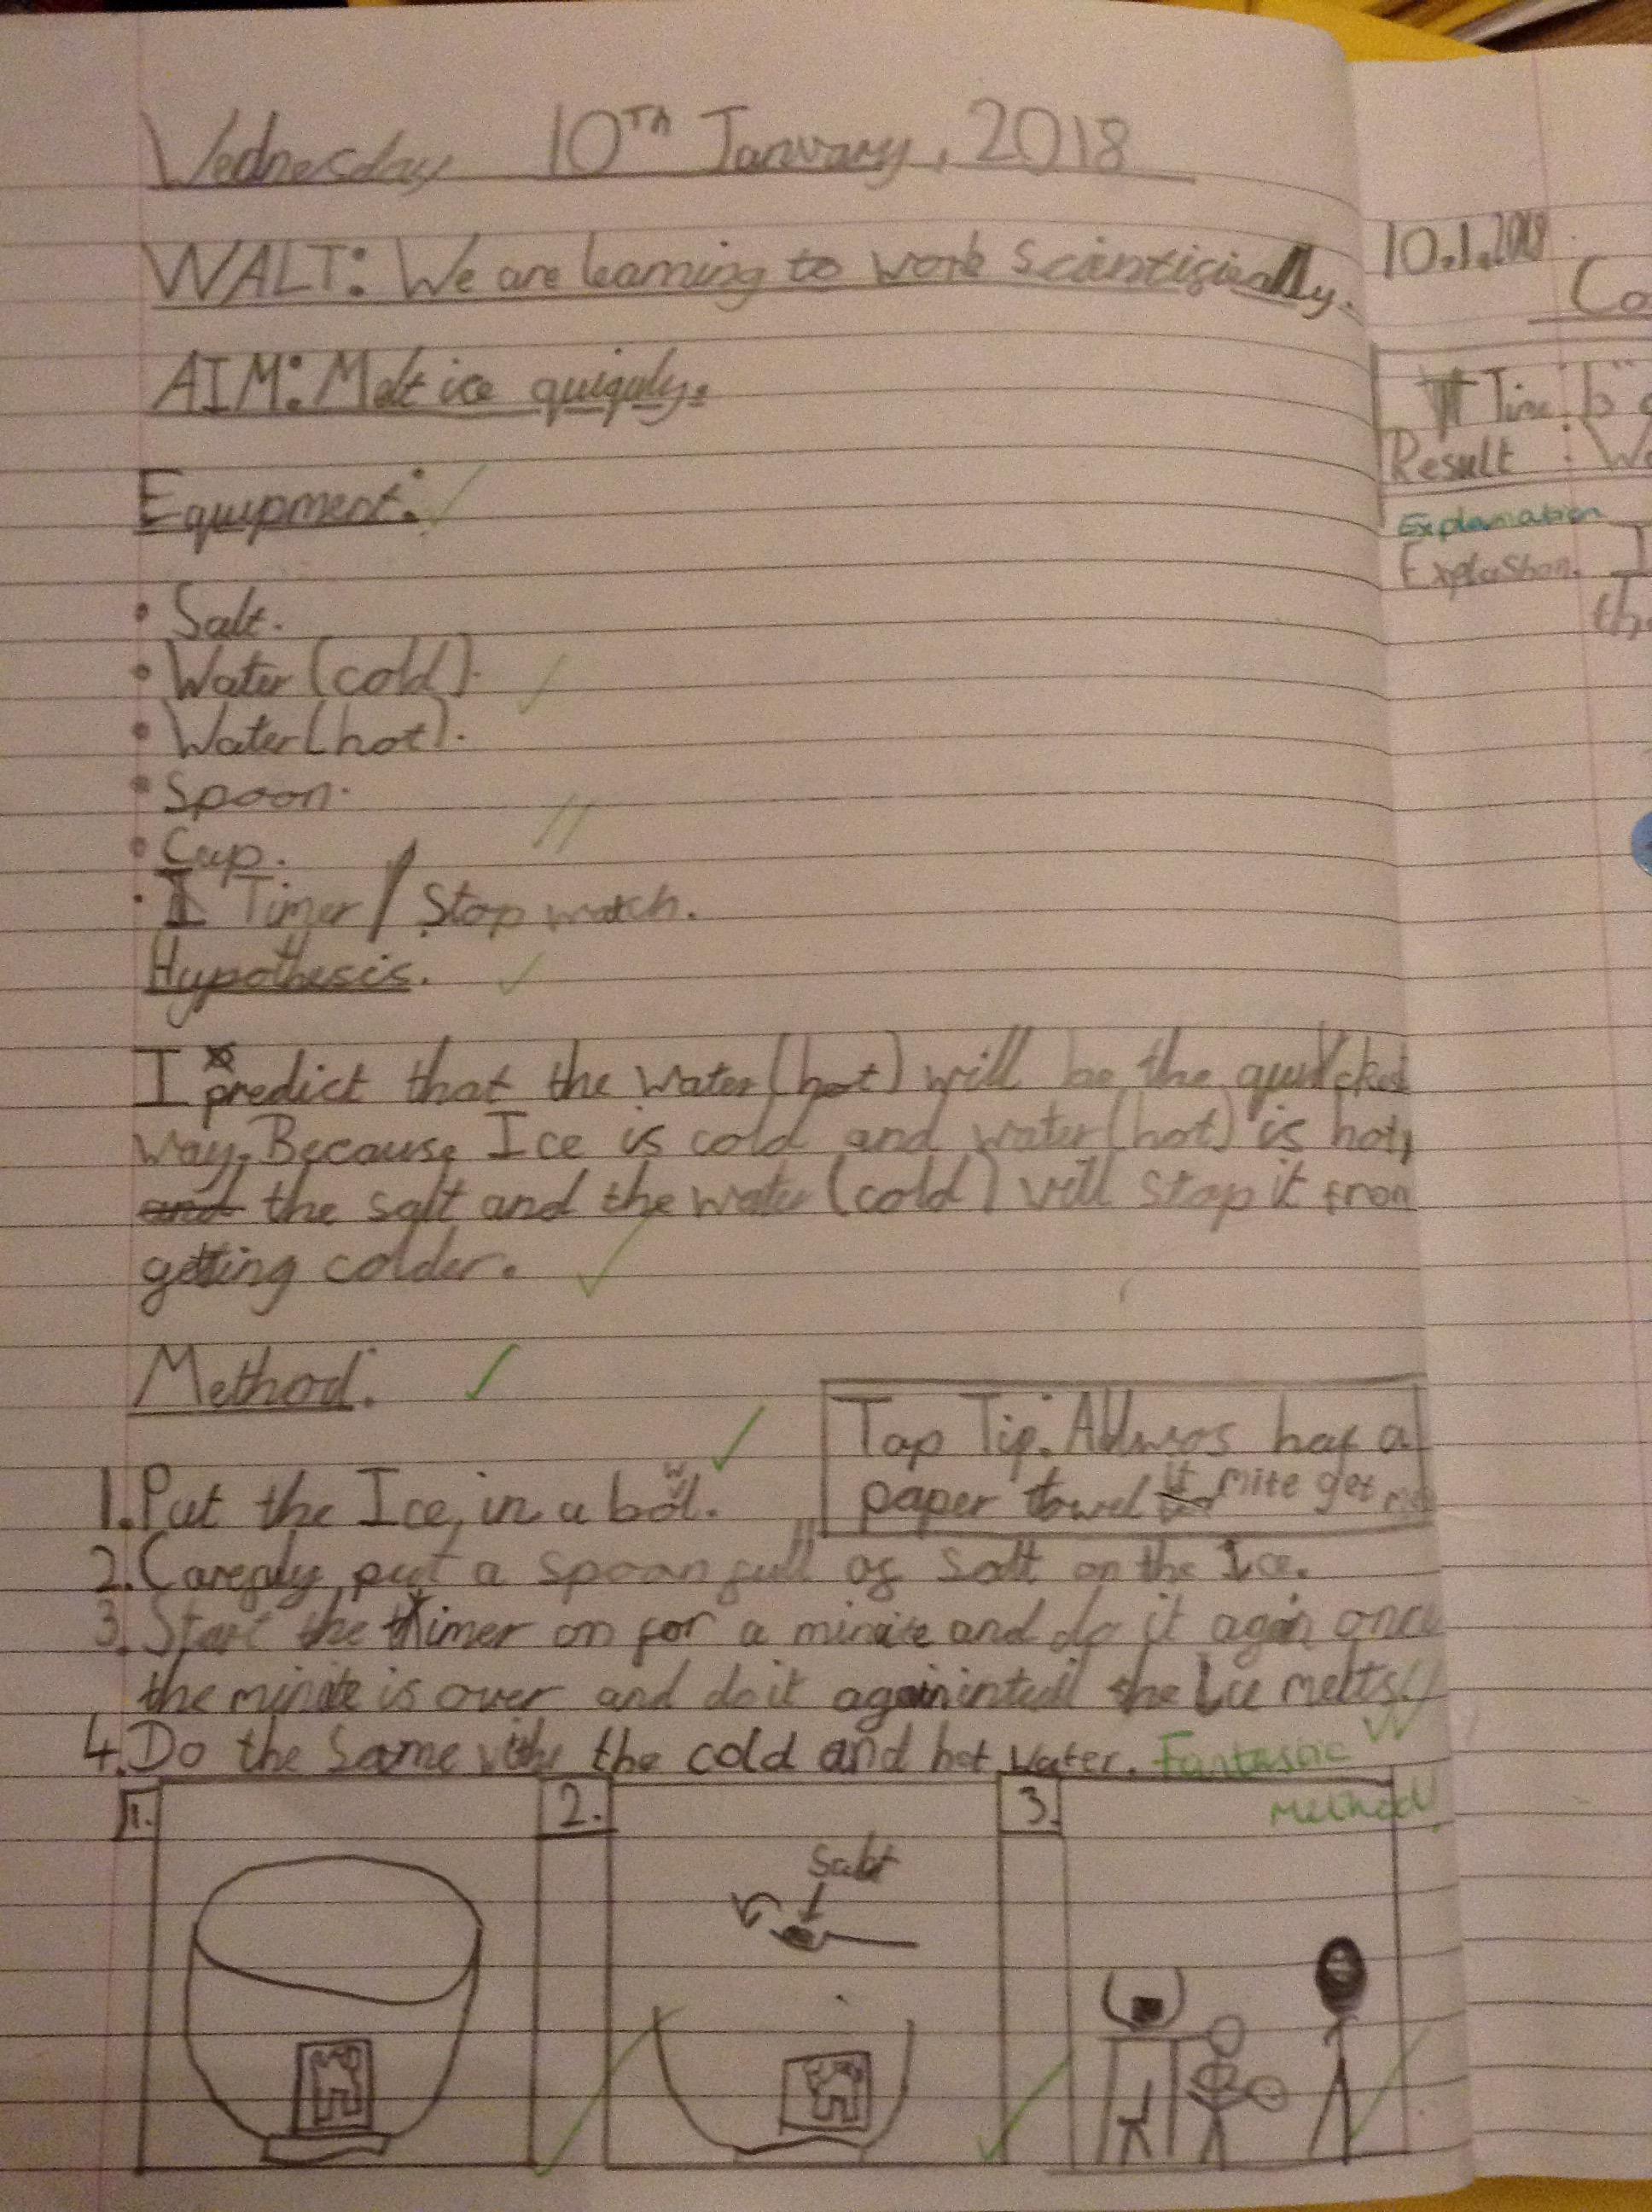 Wednesday 10TH January, 2018
WALT: We are learning to work scientificially.
AIM: Melt ice quiquly.
Equipment:
• Salt.
• Water (cold).
• Water (hot).
• Spoon.
• Cup.
• Timer / Stop watch.
Hypothesis.
I predict that the water (hot) will be the quickest
way. Because Ice is cold and water (hot) is hot,
and the salt and the water (cold) will stop it from
getting colder.
Method:
Top Tip: Allways haf a
paper towel it mite get
1. Put the Ice, in a bowl.
2. Carefly, put a spoon full of salt on the Ice.
3. Start the timer on for a minite and do it again once
the minite is over and do it again intell the Ice melts.
4. Do the Same withe the cold and hot water. Fantastic
Method!
1.
2.
3.
Salt
10.1.2018
Time:
Result :
Explanation
Explashon. I